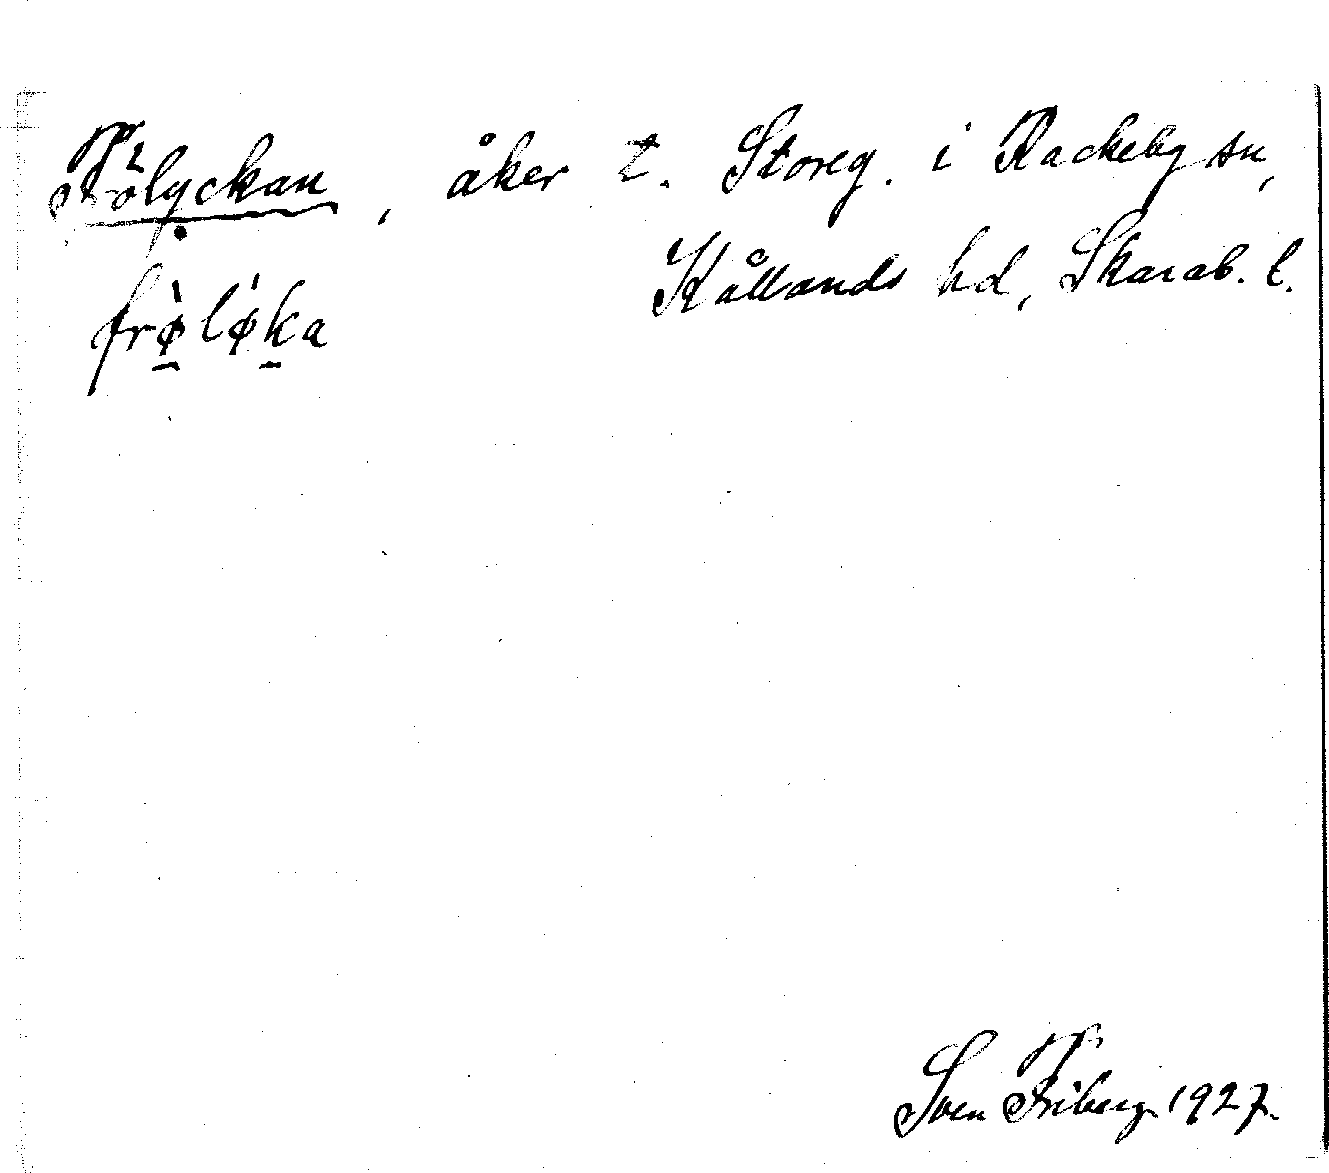 Frölyckan, åker t. Storeg. i Rackeby sn,
Kållands hd, Skarab. l.
frø̀lǿka
Sven Friberg 1927.